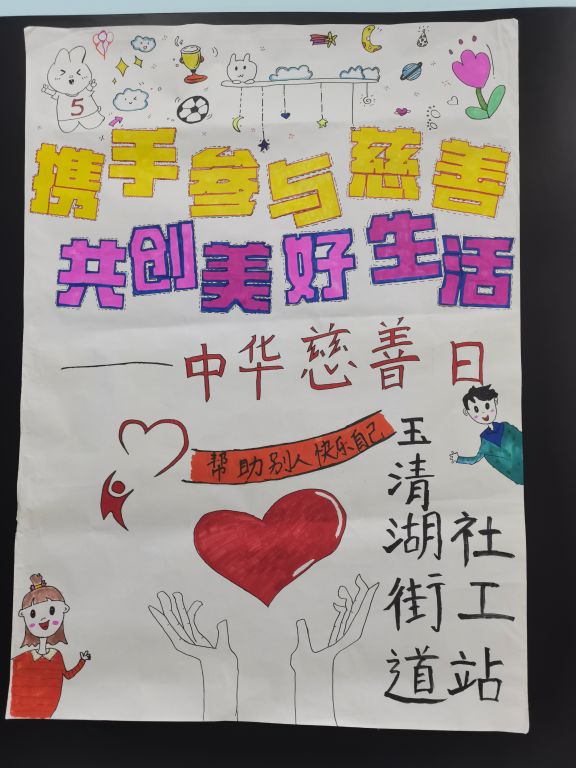 5
携手参与慈善
共创美好生活
——中华慈善日
帮助别人快乐自己
玉清湖街道
社工站